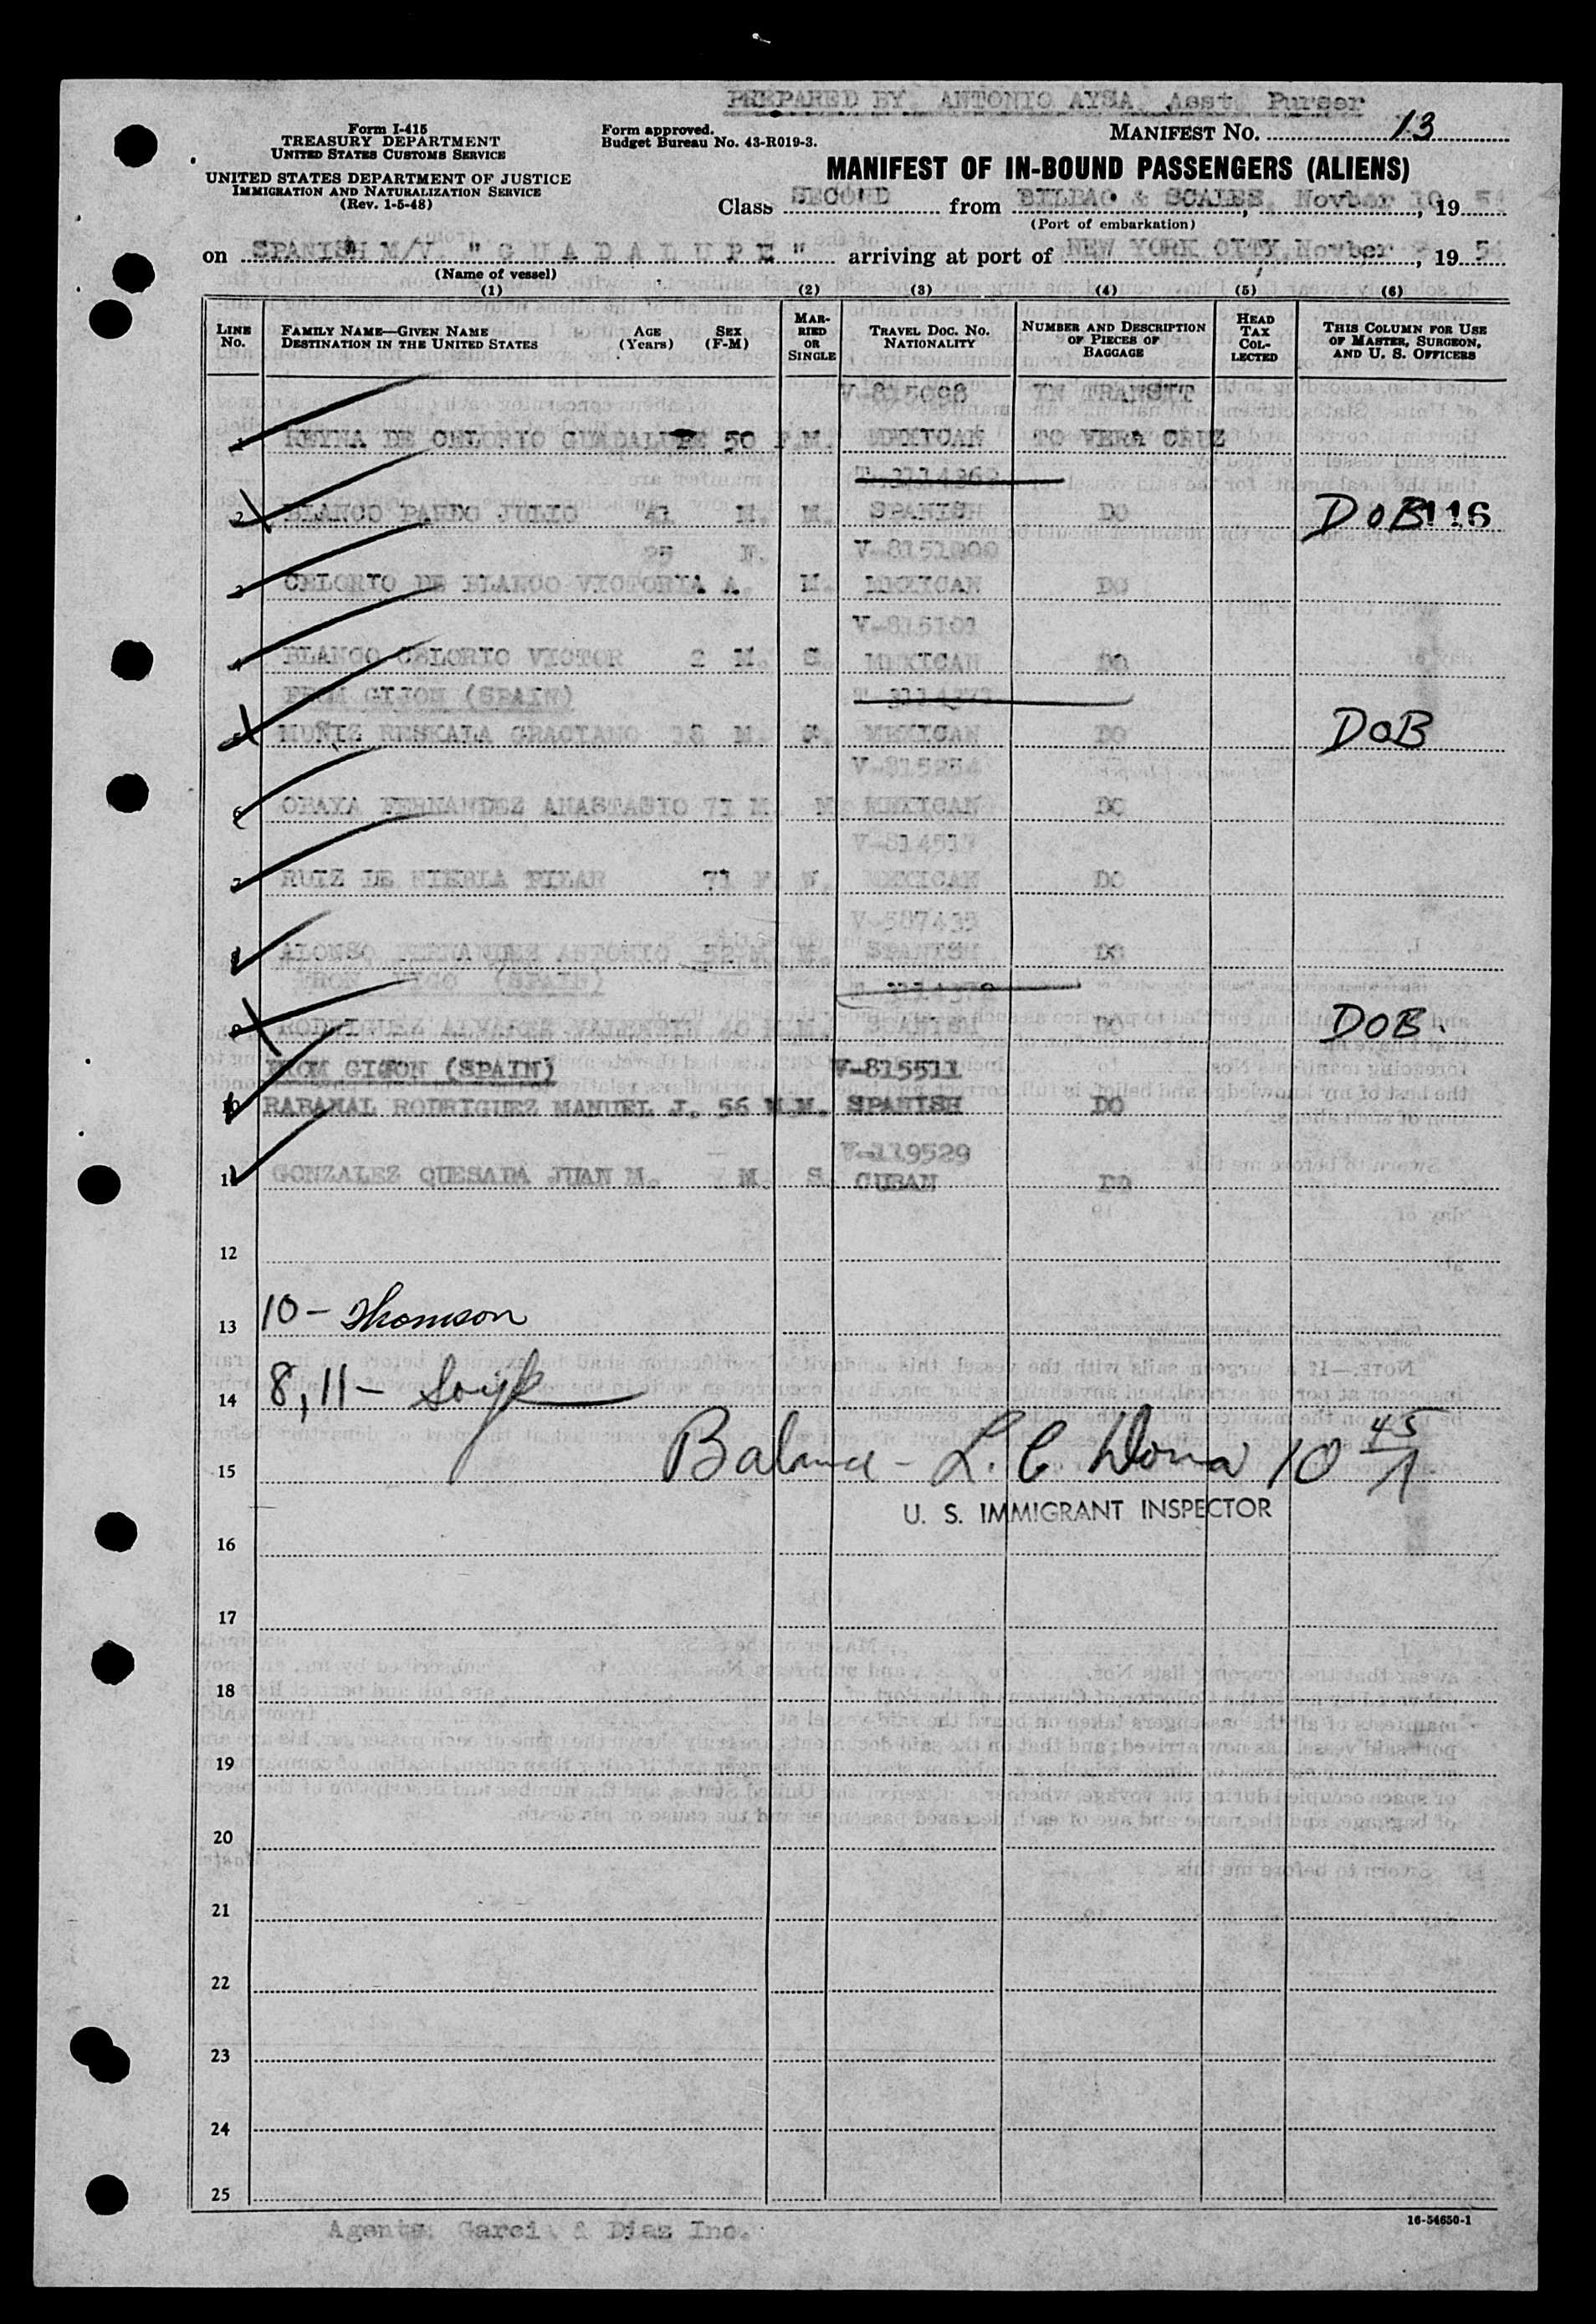 PREPARED BY ANTONIO AYSA Asst Purser
Form I-415
TREASURY DEPARTMENT
UNITED STATES CUSTOMS SERVICE
UNITED STATES DEPARTMENT OF JUSTICE
IMMIGRATION AND NATURALIZATION SERVICE
(Rev. 1-5-48)
Form approved.
Budget Bureau No. 43-R019-3.
MANIFEST NO. 13
MANIFEST OF IN-BOUND PASSENGERS (ALIENS)
Class SECOND from BILBAO & SCALES, Novber 10, 19 54
(Port of embarkation)
on SPANISH M/V. "GUADALUPE" arriving at port of NEW YORK CITY, Novber , 19 54
(Name of vessel)
(1) (2) (3) (4) (5) (6)
LINE NO. FAMILY NAME—GIVEN NAME DESTINATION IN THE UNITED STATES AGE (Years) SEX (F-M) MARRIED OR SINGLE TRAVEL DOC. NO. NATIONALITY NUMBER AND DESCRIPTION OF PIECES OF BAGGAGE HEAD TAX COLLECTED THIS COLUMN FOR USE OF MASTER, SURGEON, AND U. S. OFFICERS
V-815098 IN TRANSIT
1 REYNA DE CELORIO GUADALUPE 50 F.M. MEXICAN TO VERA CRUZ
2 BLANCO PARDO JULIO 41 M. M. SPANISH DO DOB 116
25 F.
3 CELORIO DE BLANCO VICTORIA A. M. MEXICAN DO
V-815101
4 BLANCO CELORIO VICTOR 2 M. S. MEXICAN DO
FROM GIJON (SPAIN)
5 MUÑIZ RESKALA GRACIANO 18 M. S. MEXICAN DO DOB
V-815254
6 OBAYA FERNANDEZ ANASTASIO 71 M. M MEXICAN DO
7 RUIZ DE NIEBLA PILAR 71 F. W. MEXICAN DO
V-507435
8 ALONSO FERNANDEZ ANTONIO 52 M. M. SPANISH DO
FROM VIGO (SPAIN)
9 RODRIGUEZ ALVAREZ M.M. SPANISH DO DOB.
FROM GIJON (SPAIN) V-815511
10 RABANAL RODRIGUEZ MANUEL J. 56 M.M. SPANISH DO
V-119529
11 GONZALEZ QUESADA JUAN M. M. S. CUBAN DO
12
13 10 - Thomson
14 8, 11 -
15 Balance - L. C 10 45/1
U. S. IMMIGRANT INSPECTOR
16
17
18
19
20
21
22
23
24
25
16-54650-1
Agents. Garcia & Diaz Inc.